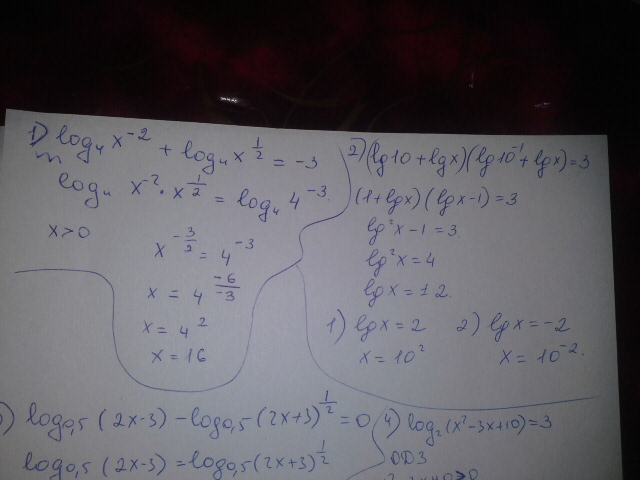 1) log₄ x⁻² + log₄ x^(1/2) = -3
log₄ x⁻² · x^(1/2) = log₄ 4⁻³.
x>0
x^(-3/2) = 4⁻³
x = 4^(-6/-3)
x = 4²
x = 16
2) (lg10 + lgx)(lg10⁻¹ + lgx) = 3
(1 + lgx)(lgx - 1) = 3
lg²x - 1 = 3.
lg²x = 4
lgx = ±2.
1) lgx = 2 2) lgx = -2
x = 10² x = 10⁻².
) log₀,₅ (2x-3) - log₀,₅ (2x+3)^(1/2) = 0
log₀,₅ (2x-3) = log₀,₅ (2x+3)^(1/2)
4) log₂ (x² - 3x + 10) = 3
ОДЗ